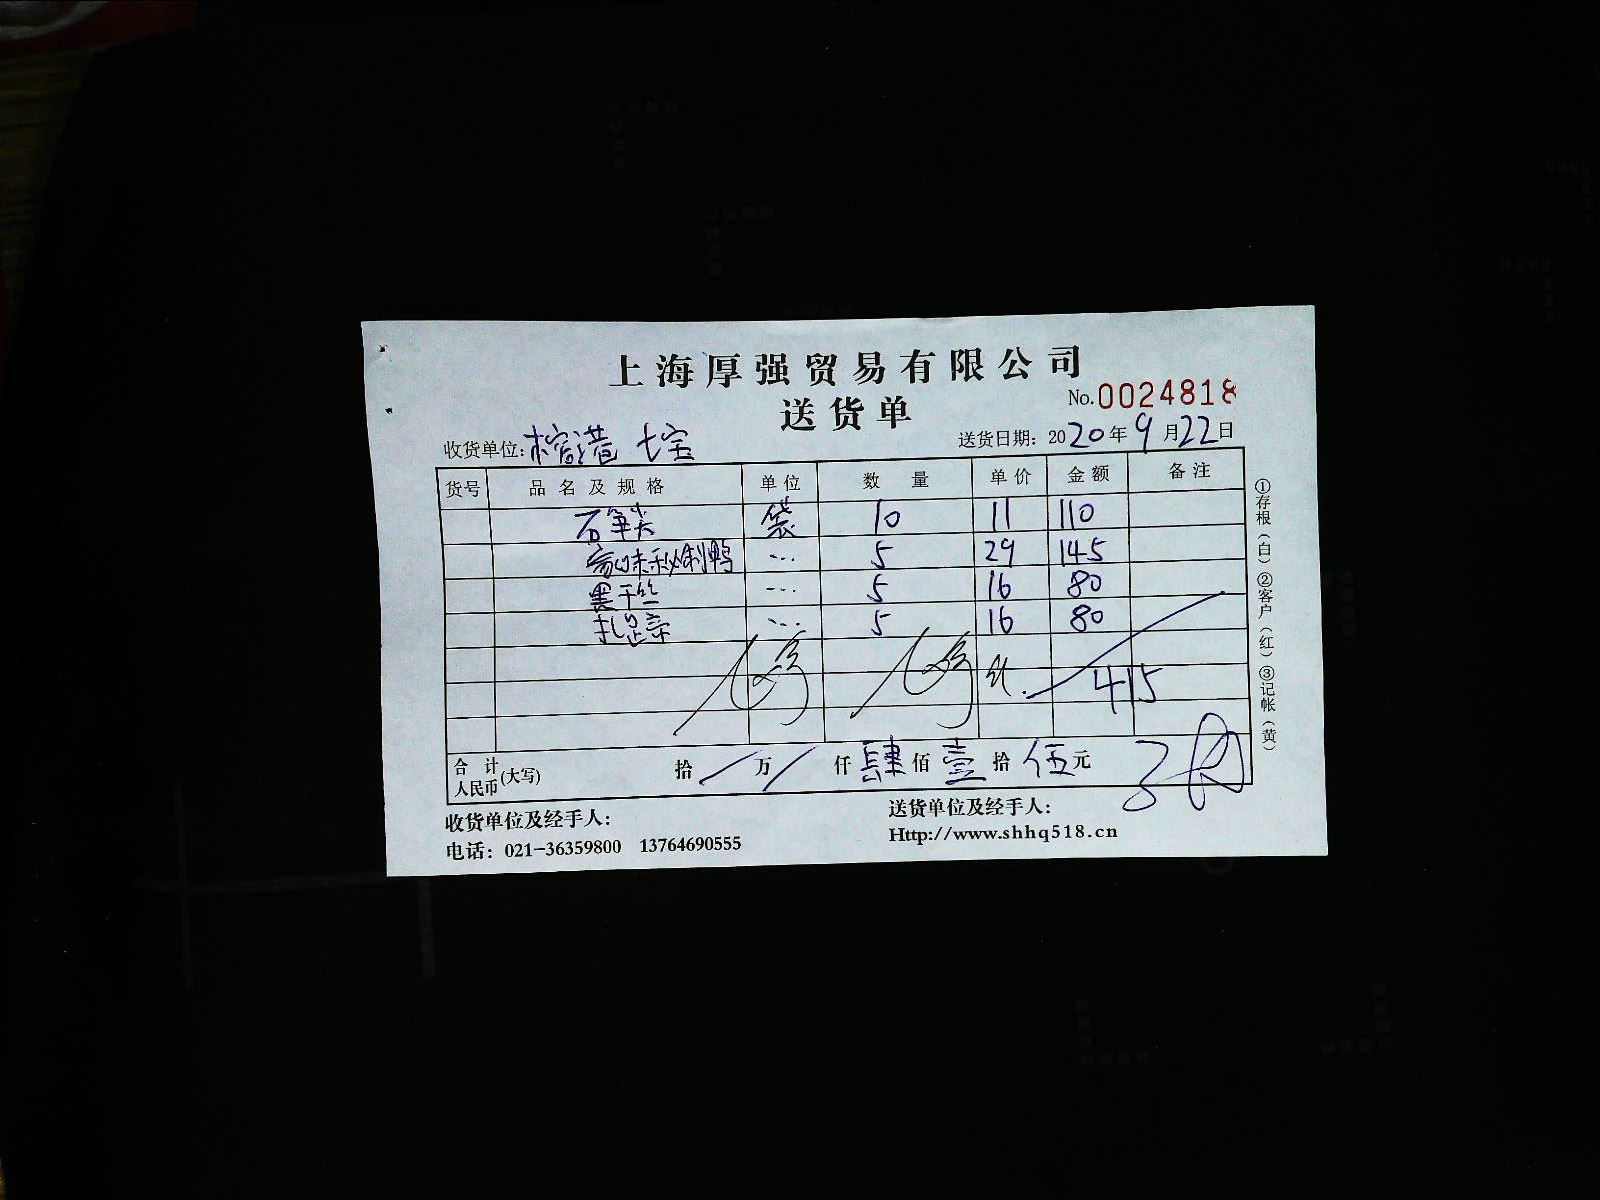 上海厚强贸易有限公司
No.0024818
送货单
收货单位: 榕港 七宝 送货日期: 2020年9月22日
货号 品名及规格 单位 数量 单价 金额 备注
石笋尖 袋 10 11 110
家味秘制鸭 ... 5 29 145
黑干丝 ... 5 16 80
扎蹄 ... 5 16 80
415
合计人民币(大写) 拾 万 仟肆佰壹拾伍元
收货单位及经手人: 送货单位及经手人:
电话: 021-36359800 13764690555 Http://www.shhq518.cn
①存根(白)②客户(红)③记帐(黄)